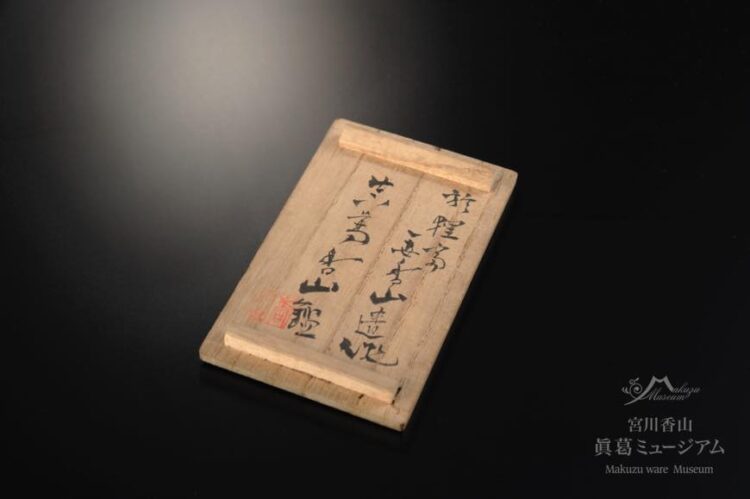 香山遺作
真葛香山鑑
Makuzu
Museum
宮川香山
眞葛ミュージアム
Makuzu ware Museum